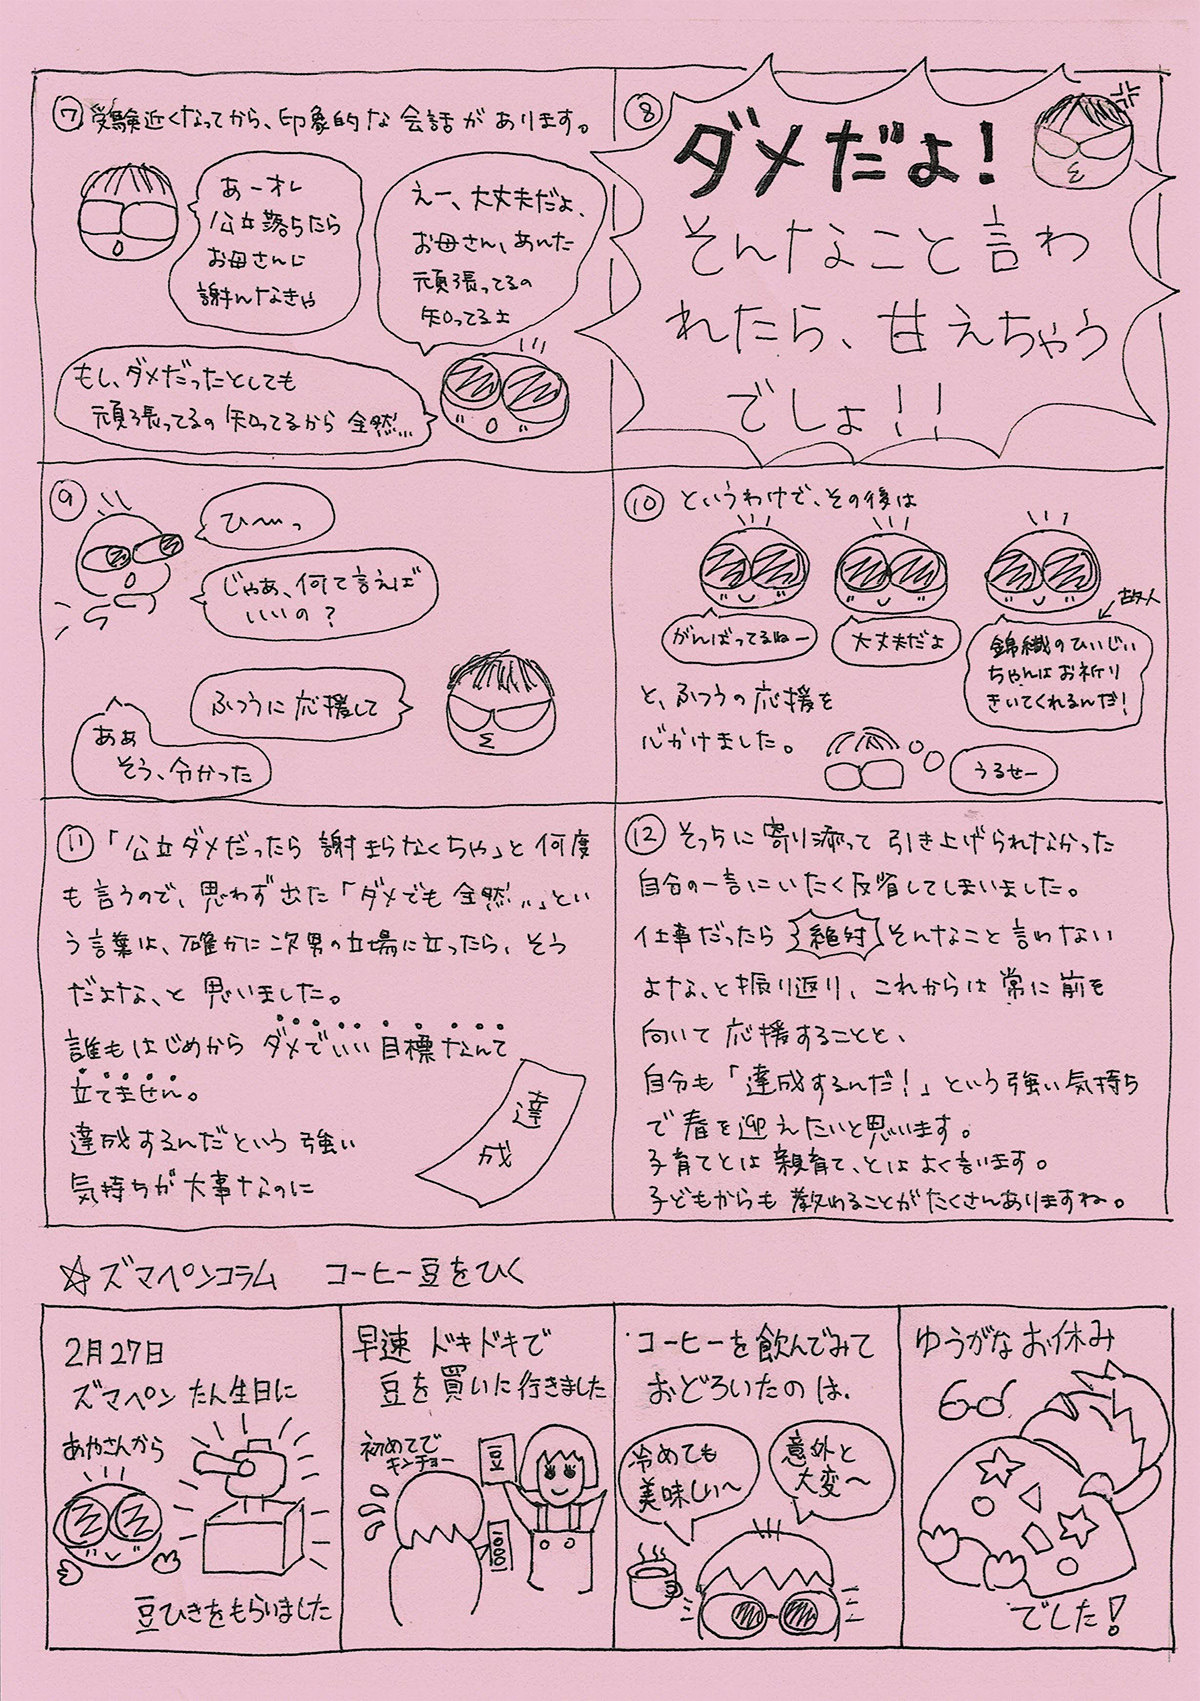 ⑦受験近くなってから、印象的な会話があります。
あーオレ
公立落ちたら
お母さんに
謝んなきゃ
えー、大丈夫だよ、
お母さん、あんた
頑張ってるの
知ってるよ
もし、ダメだったとしても
頑張ってるの知ってるから全然…
⑧
ダメだよ!
そんなこと言わ
れたら、甘えちゃう
でしょ!!
⑨
ひ〜っ
じゃあ、何て言えば
いいの?
ふつうに応援して
ああ
そう、分かった
⑩というわけで、その後は
がんばってるねー
大丈夫だよ
故人
錦織のひいじい
ちゃんはお祈り
きいてくれるんだ!
と、ふつうの応援を
心がけました。
うるせー
⑪「公立ダメだったら謝まらなくちゃ」と何度
も言うので、思わず出た「ダメでも全然…」とい
う言葉は、確かに次男の立場に立ったら、そう
だよな、と思いました。
誰もはじめからダメでいい目標なんて
立てません。
達成するんだという強い
気持ちが大事なのに
達成
⑫そっちに寄り添って引き上げられなかった
自分の一言にいたく反省してしまいました。
仕事だったら絶対そんなこと言わない
よな、と振り返り、これからは常に前を
向いて応援することと、
自分も「達成するんだ!」という強い気持ち
で春を迎えたいと思います。
子育てとは親育て、とはよく言います。
子どもからも教わることがたくさんありますね。
☆ズマペンコラム コーヒー豆をひく
2月27日
ズマペンたん生日に
あやさんから
豆ひきをもらいました
早速ドキドキで
豆を買いに行きました
初めてで
キンチョー
豆
1000
コーヒーを飲んでみて
おどろいたのは、
冷めても
美味しい〜
意外と
大変〜
ゆうがなお休み
でした!